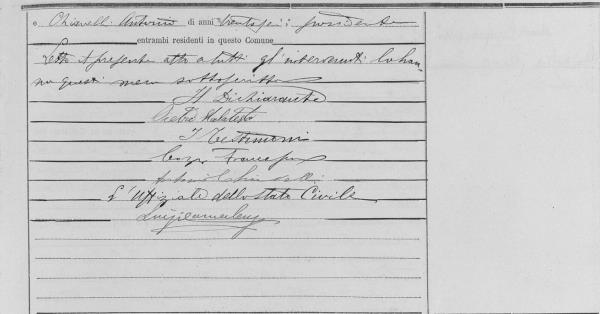 e Antonio di anni trentasei: possidente
entrambi residenti in questo Comune
Letto il presente atto a tutti gl'intervenuti lo han-
no questi meco sottoscritto
Il Dichiarante
Pietro Malatesta
I Testimoni
Francesco
Antonio
L'Uffiziale dello Stato Civile